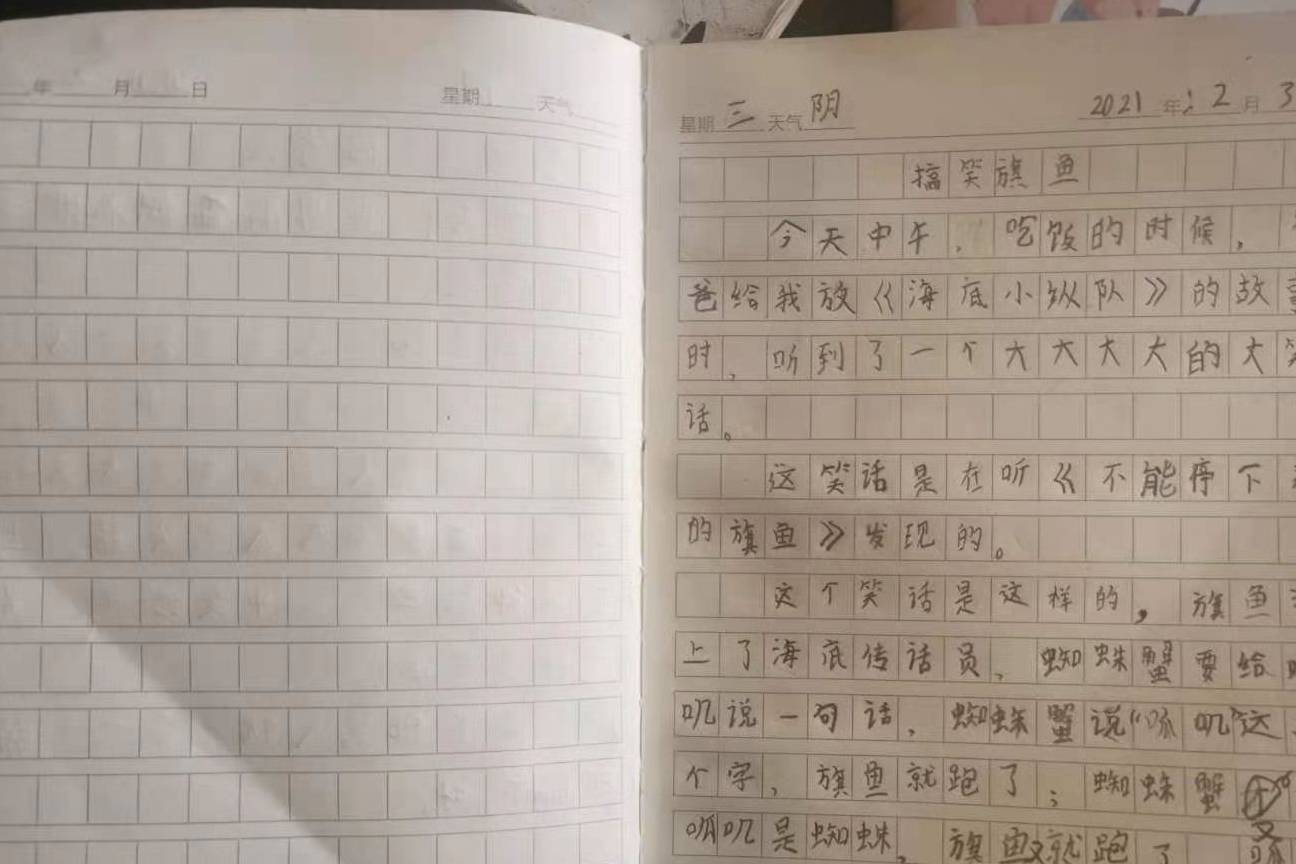 年 月 日 星期 天气
星期 三 天气 阴 2021 年 12 月 3
搞笑旗鱼
今天中午,吃饭的时候,
爸给我放《海底小纵队》的故事
时,听到了一个大大大大的大笑
话。
这笑话是在听《不能停下
的旗鱼》发现的。
这个笑话是这样的,旗鱼
上了海底传话员,蜘蛛蟹要给
叽说一句话,蜘蛛蟹说“呱叽”这
个字,旗鱼就跑了;蜘蛛蟹
又
呱叽是蜘蛛,旗鱼又就跑了